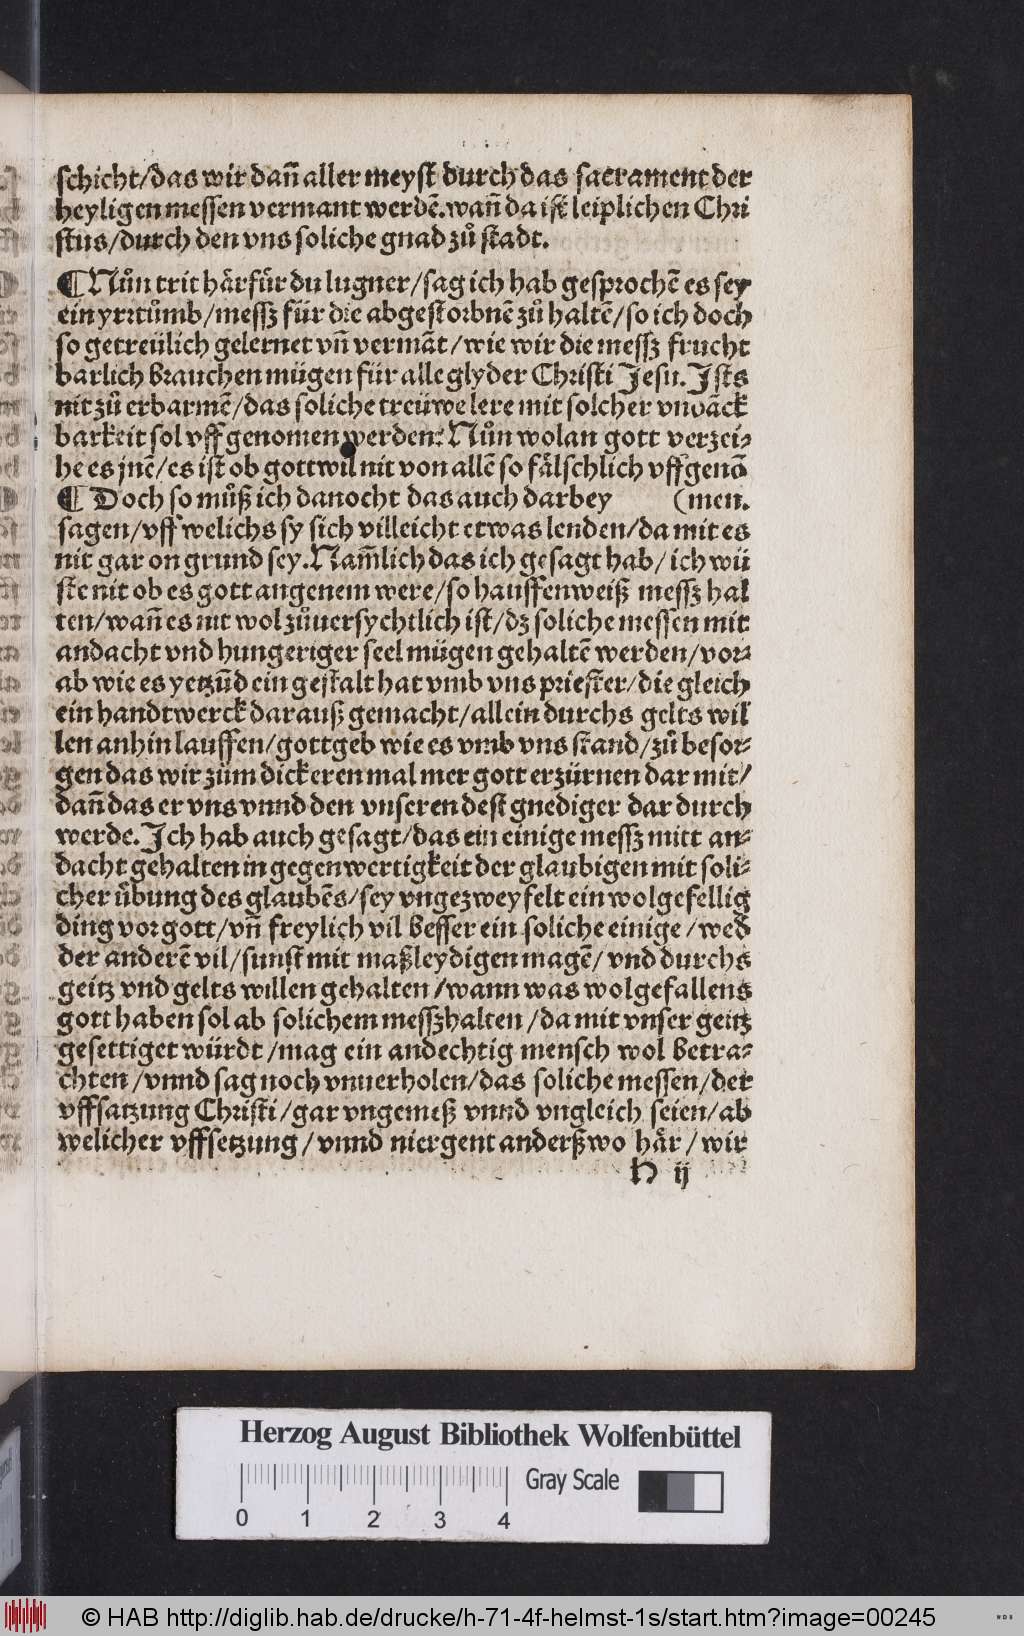 schicht/das wir dañ aller meyst durch das sacrament der
heyligen messen vermant werdẽ.wañ da ist leiplichen Chri
stus/durch den vns soliche gnad zů stadt.
¶Nůn trit härfür du lugner/sag ich hab gesprochẽ es sey
ein yrrtůmb/messz für die abgestorbnẽ zů haltẽ/so ich doch
so getreülich gelernet vñ vermãt/wie wir die messz frucht
barlich brauchen mügen für alle glyder Christi Jesu.Ists
nit zů erbarmẽ/das soliche treüwe lere mit solcher vndãck
barkeit sol vff genomen werden: Nůn wolan gott verzei⸗
he es jnẽ/es ist ob gott wil nit von allẽ so fälschlich vffgenõ
¶ Doch so můß ich danocht das auch darbey (men.
sagen/vff welichs sy sich villeicht etwas lenden/da mit es
nit gar on grund sey.Nam̃lich das ich gesagt hab/ich wü
ste nit ob es gott angenem were/so hauffenweiß messz hal
ten/wañ es nit wol zůuersychtlich ist/dz soliche messen mit
andacht vnd hungeriger seel mügen gehaltẽ werden/vor⸗
ab wie es yetzũd ein gestalt hat vmb vns priester/die gleich
ein handtwerck darauß gemacht/allein durchs gelts wil
len anhin lauffen/gottgeb wie es vmb vns stand/zů besor⸗
gen das wir zům dickeren mal mer gott erzürnen dar mit/
dañ das er vns vnnd den vnseren dest gnediger dar durch
werde.Ich hab auch gesagt/das ein einige messz mitt an⸗
dacht gehalten in gegenwertigkeit der glaubigen mit soli⸗
cher übung des glaubẽs/sey vngezweyfelt ein wolgefellig
ding vor gott/vñ freylich vil besser ein soliche einige/wed
der anderẽ vil/sunst mit maßleydigen magẽ/vnd durchs
geitz vnd gelts willen gehalten/wann was wolgefallens
gott haben sol ab solichem messzhalten/da mit vnser geitz
gesettiget würdt/mag ein andechtig mensch wol betra⸗
chten/vnnd sag noch vnuerholen/das soliche messen/der
vffsatzung Christi/gar vngemeß vnnd vngleich seien/ab
welicher vffsetzung/vnnd niergent anderßwo här/wir
H ij
Herzog August Bibliothek Wolfenbüttel
Gray Scale
0 1 2 3 4
© HAB http://diglib.hab.de/drucke/h-71-4f-helmst-1s/start.htm?image=00245